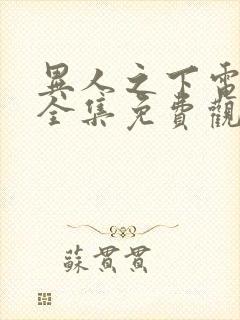 異人之下電
全集免費觀
蘇貫貫